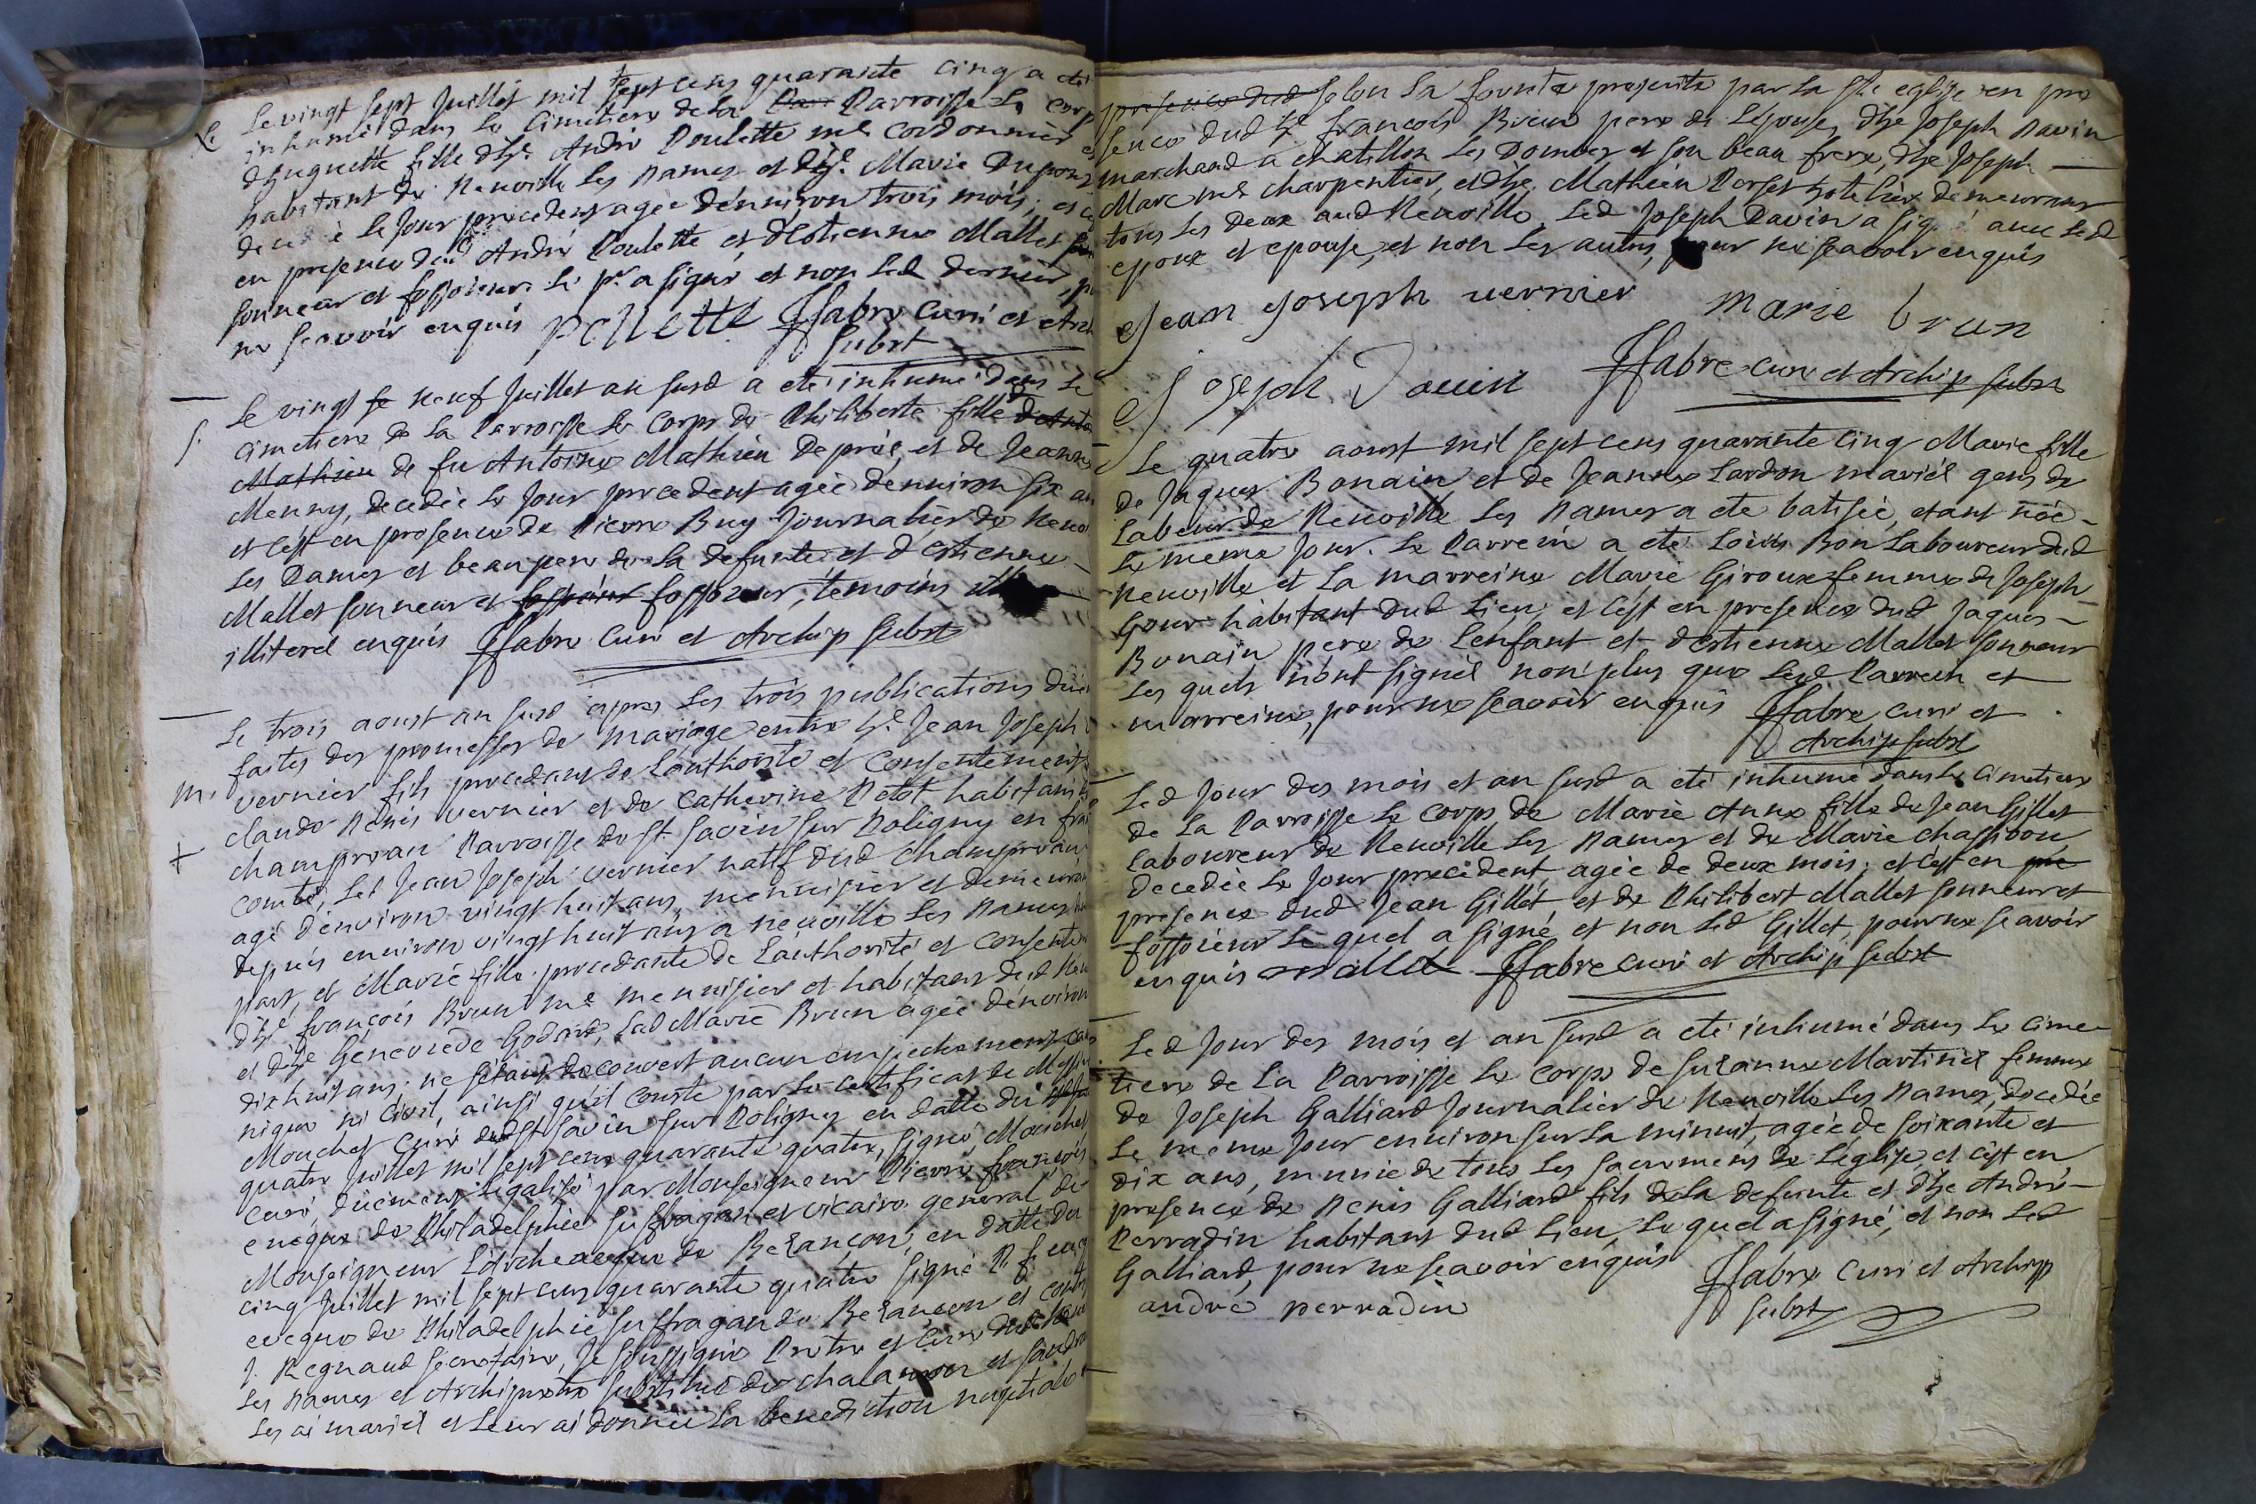 Le vingt sept Juillet mil sept cens quarante cinq a eté
inhumé dans le Cimetiere de la Parroisse Le corps
d'huguette fille d'h.e André Poulette me cordonnier et
habitant de Neuville Les Dames et de d.e Marie Dupont
decedée le Jour precedent agée d'environ trois mois, et c'est
en presence dud André Poulette, et d'Estienne Mallet
sonneur et fossoieur. Le pr a signé et non led dernier, pour
ne sçavoir enquis pollette Ffabre Curé et Arch
subst
S. Le vingt neuf Juillet an susd a eté inhumé dans Le
cimetiere de la Parroisse Le Corps de Philiberte fille
Mathieu de feu Antoine Mathieu Depras, et de Jeanne
Menny, decedée Le Jour precedent agée d'environ six ans
et c'est en presence de Pierre Buy Journalier de Neuville
Les Dames et beaupere de La defunte et d'Estienne
Mallet sonneur et fossoieur, temoins
illiterés enquis Ffabre Curé et Archip subst
Le trois aoust an susd apres Les trois publications
m. faites des promesses de mariage entre Sr. Jean Joseph
vernier fils procedant de L'authorité et Consentement
claude Denis vernier et de Catherine habitants
champvau Parroisse de St Savin sur Poligny en franche
comté, Led Jean Joseph vernier natif dud champvau,
agé d'environ vingt huit ans, menuisier et demeurant
depuis environ vingt huit ans a neuville Les Dames
part, et Marie fille procedante de L'authorité et Consentement
d'h.e françois Brun me menuisier et habitant dud Neuville
et d'h.e Genevieve Godard, Lad Marie Brun agée d'environ
dix huit ans. ne s'etant decouvert aucun empechement
nique ni Civil, ainsi qu'il Conste par Le certificat de
Mouchet Curé dud St Savin sur Poligny en datte du
quatre Juillet mil sept cens quarante quatre, signé Mouchet
Curé, duement Legalisé par Monseigneur Pierre françois
eveque de Philadelphie suffragan et vicaire general de
Monseigneur L'Archeveque de Besançon, en datte du
cinq Juillet mil sept cens quarante quatre signé P. f.
eveque de Philadelphie suffragan de Besançon et
J. Regnaud secretaire, Je soussigné Pretre et Curé de Neuville
Les Dames et Archipretre substitué de chalamon et
Les ai mariés et Leur ai donné La benediction nuptiale
presence dud selon la forme presente par la ste eglise en pre
sence dud Sr françois Brun pere de L'epouse, d'h.e Joseph Davin
marchand a chatillon Les Dombes et son beau frere, d'h.e Joseph
Marc me charpentier, et d'h.e Mathieu hotelier demeurans
tous Les Deux aud Neuville. Led Joseph Davin a signé avec Led
epoux et epouse, et non Les autres, pour ne sçavoir enquis
Jean Joseph vernier marie brun
Joseph Davin Ffabre curé et Archip subst
Le quatre aoust mil sept cens quarante cinq Marie fille
de Jaques Bonain et de Jeanne Lardon mariés gens de
Labeur de Neuville Les Dames a eté batisée, etant née
Le meme Jour. Le Parrein a eté Loüis Bon Laboureur dud
Neuville et La marreine Marie Giroux femme de Joseph
Gour habitant dud Lieu, et c'est en presence dud Jaques
Bonain pere de L'enfant et d'estienne Mallet sonneur
Les quels n'ont signés non plus que Led Parrein et
marreine, pour ne sçavoir enquis Ffabre curé et
Archip subst
Led Jour des mois et an susd a eté inhumé dans Le Cimetiere
de La Parroisse Le Corps de Marie Anne fille de Jean Gillet
Laboureur de Neuville Les Dames et de Marie
decedée Le Jour precedent agée de deux mois; et c'est en
presence dud Jean Gillet et de Philibert Mallet sonneur et
fossoieur Le quel a signé et non Led Gillet, pour ne sçavoir
enquis mallet Ffabre curé et Archip subst
Led Jour des mois et an susd a eté inhumé dans Le Cime-
tiere de La Parroisse Le Corps de Suzanne Martinet femme
de Joseph Galliard Journalier de Neuville Les Dames, decedée
Le meme Jour environ sur La minuit, agée de soixante et
dix ans, munie de tous Les sacremens de L'eglise, et c'est en
presence de Denis Galliard fils de La defunte et d'h.e André
Perradin habitant dud Lieu, Le quel a signé, et non Led
Galliard, pour ne sçavoir enquis Ffabre curé et Archip
andré perradin subst